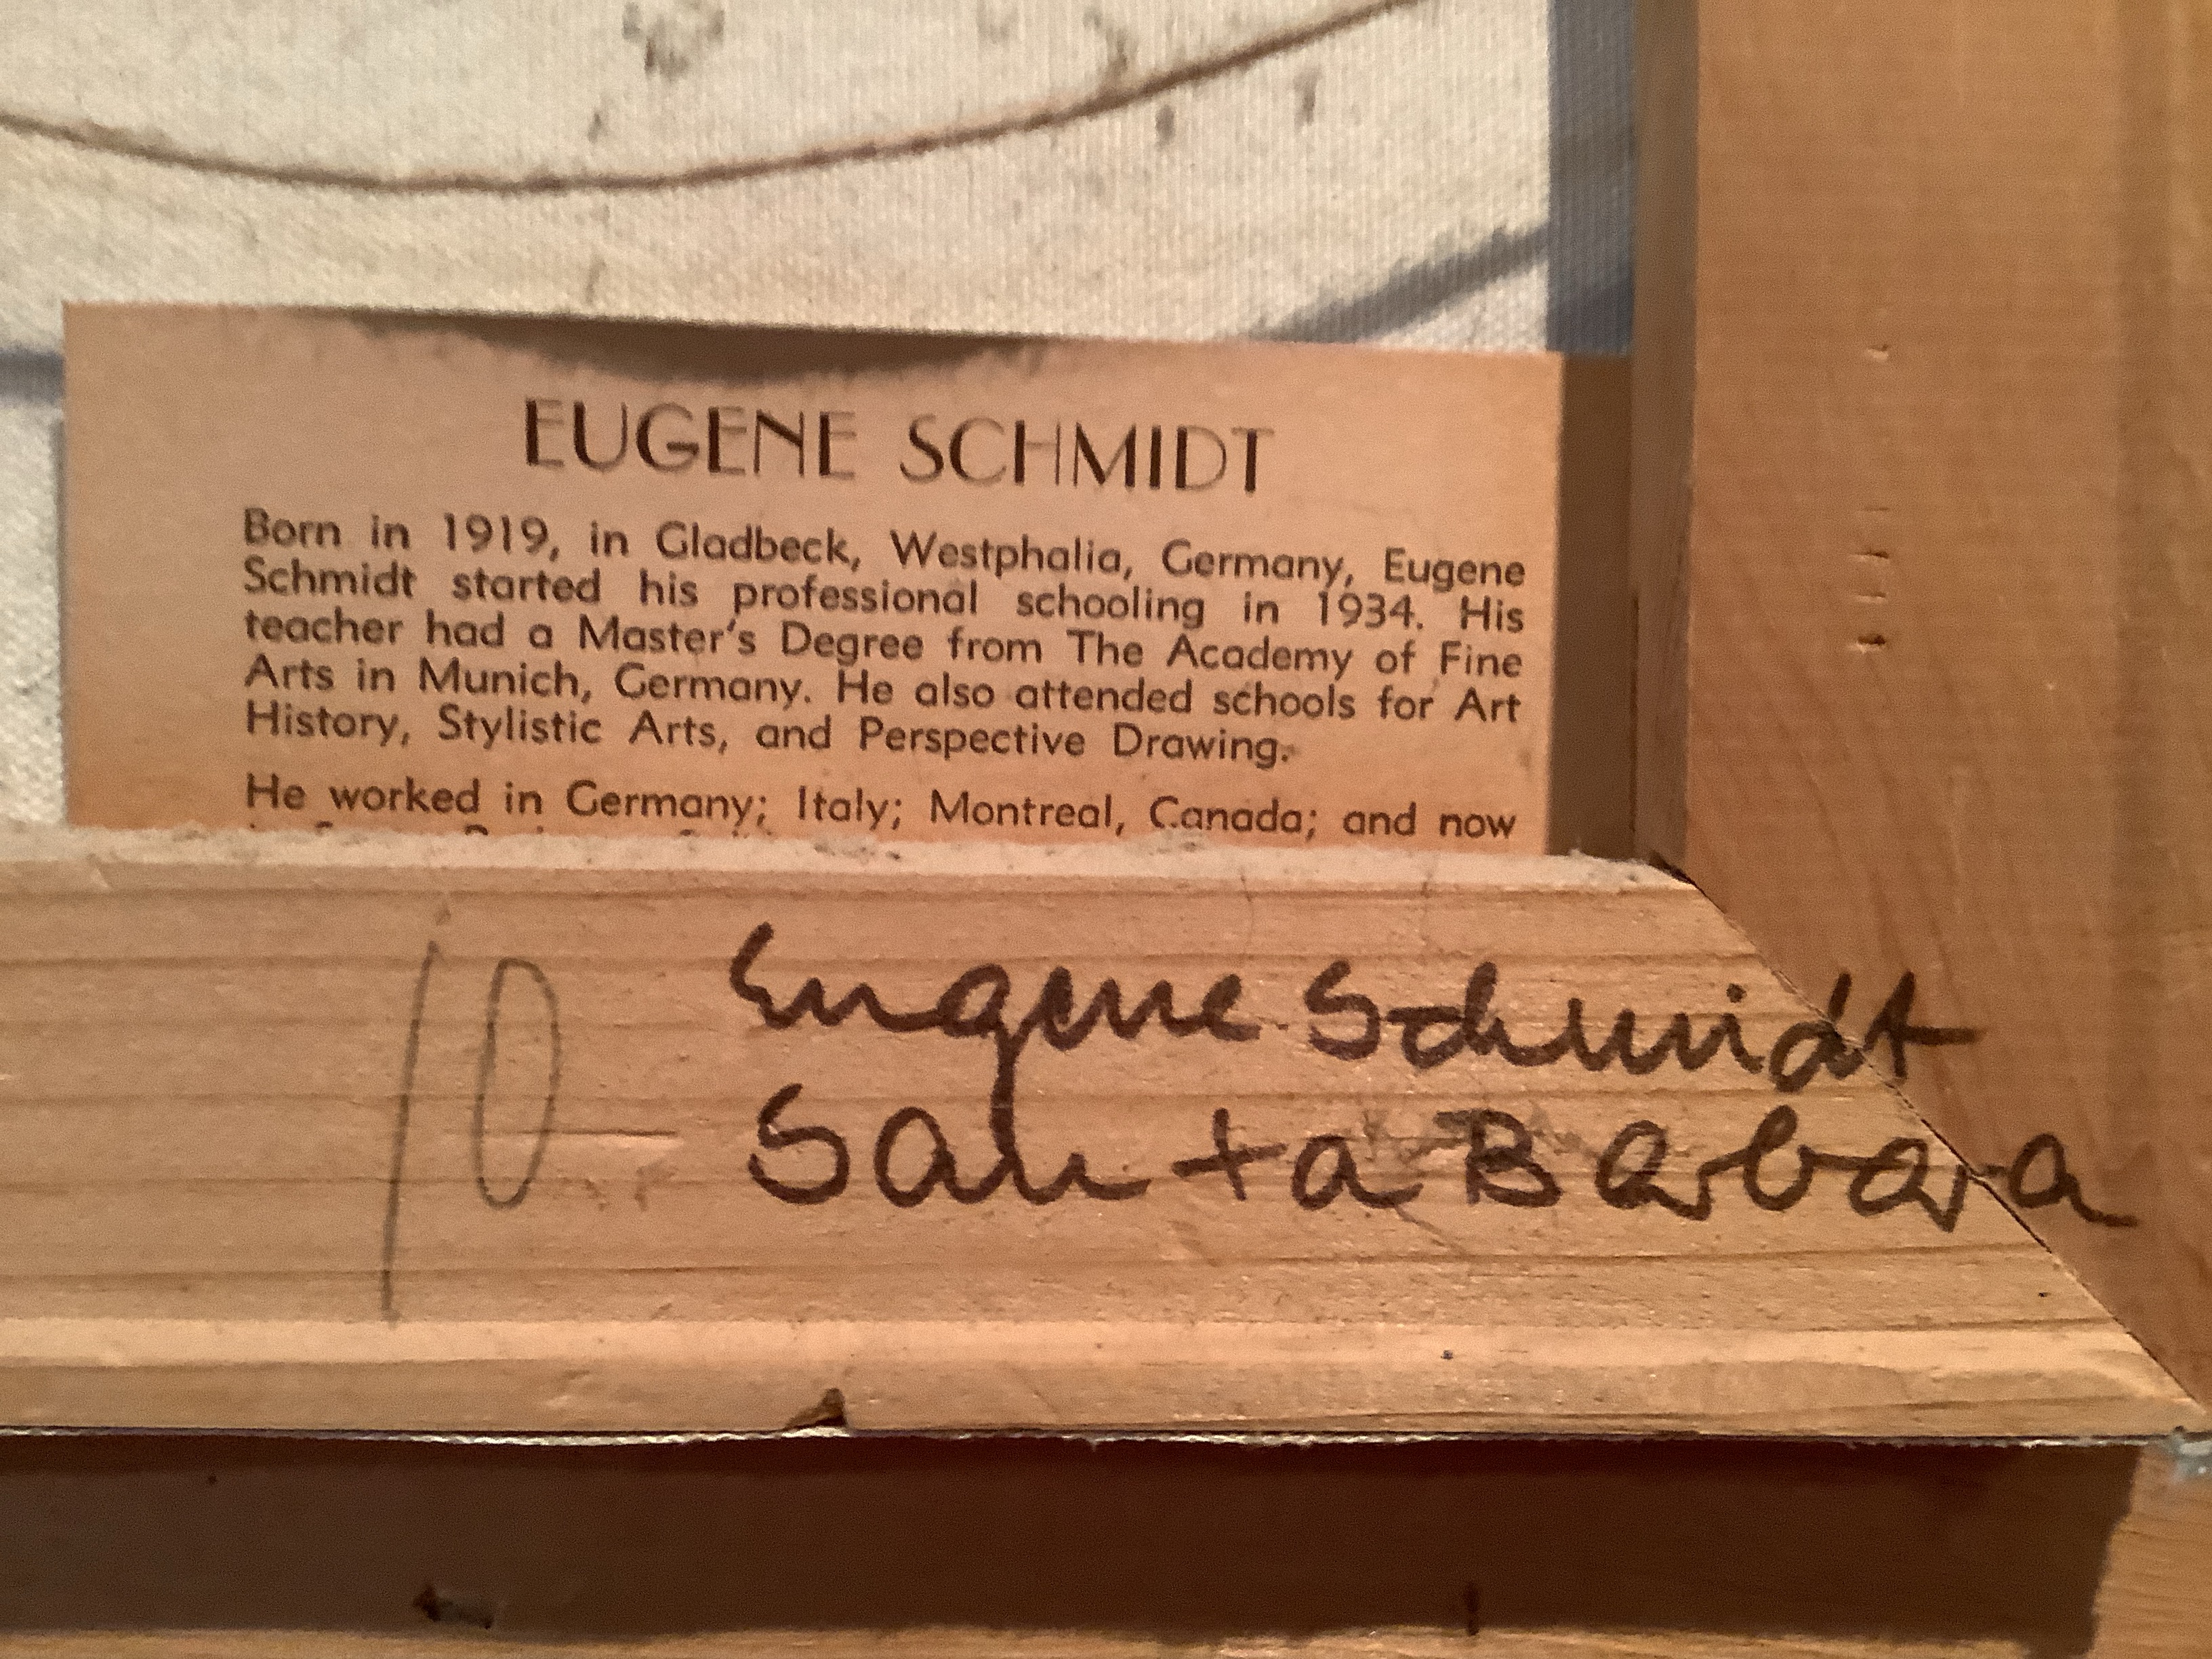 EUGENE SCHMIDT
Born in 1919, in Gladbeck, Westphalia, Germany, Eugene
Schmidt started his professional schooling in 1934. His
teacher had a Master's Degree from The Academy of Fine
Arts in Munich, Germany. He also attended schools for Art
History, Stylistic Arts, and Perspective Drawing.
He worked in Germany; Italy; Montreal, Canada; and now
10 Eugene Schmidt
Santa Barbara